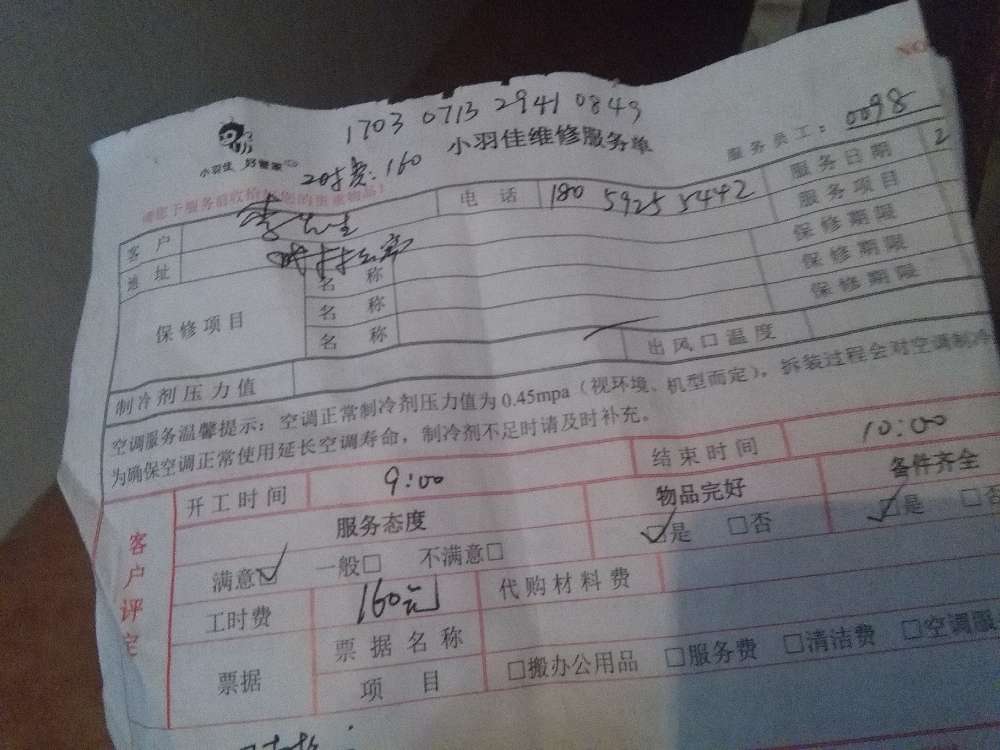 1703 0713 2941 0849
小羽佳 好管家
小羽佳维修服务单
服务员工：0098
160
请您于服务前收拾好您的贵重物品！
客户 李先生 电话 180 5925 5442 服务日期 2
地址 服务项目
保修项目 名称 保修期限
名称 保修期限
名称 保修期限
制冷剂压力值 出风口温度
空调服务温馨提示：空调正常制冷剂压力值为0.45mpa（视环境、机型而定），拆装过程会对空调制冷
为确保空调正常使用延长空调寿命，制冷剂不足时请及时补充。
客户评定
开工时间 9:00 结束时间 10:00
服务态度 物品完好 备件齐全
满意☑ 一般□ 不满意□ ☑是 □否 ☑是 □否
工时费 160元 代购材料费
票据 票据名称 □搬办公用品 □服务费 □清洁费 □空调服
项目